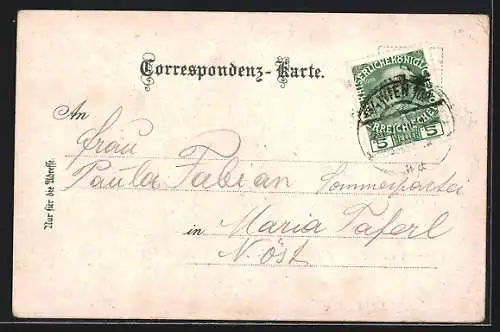 Correspondenz-Karte.
An
Frau
Paula Fabian Sommerpartei
in Maria Taferl
N.öst
Nur für die Adresse.
WIEN
5 5